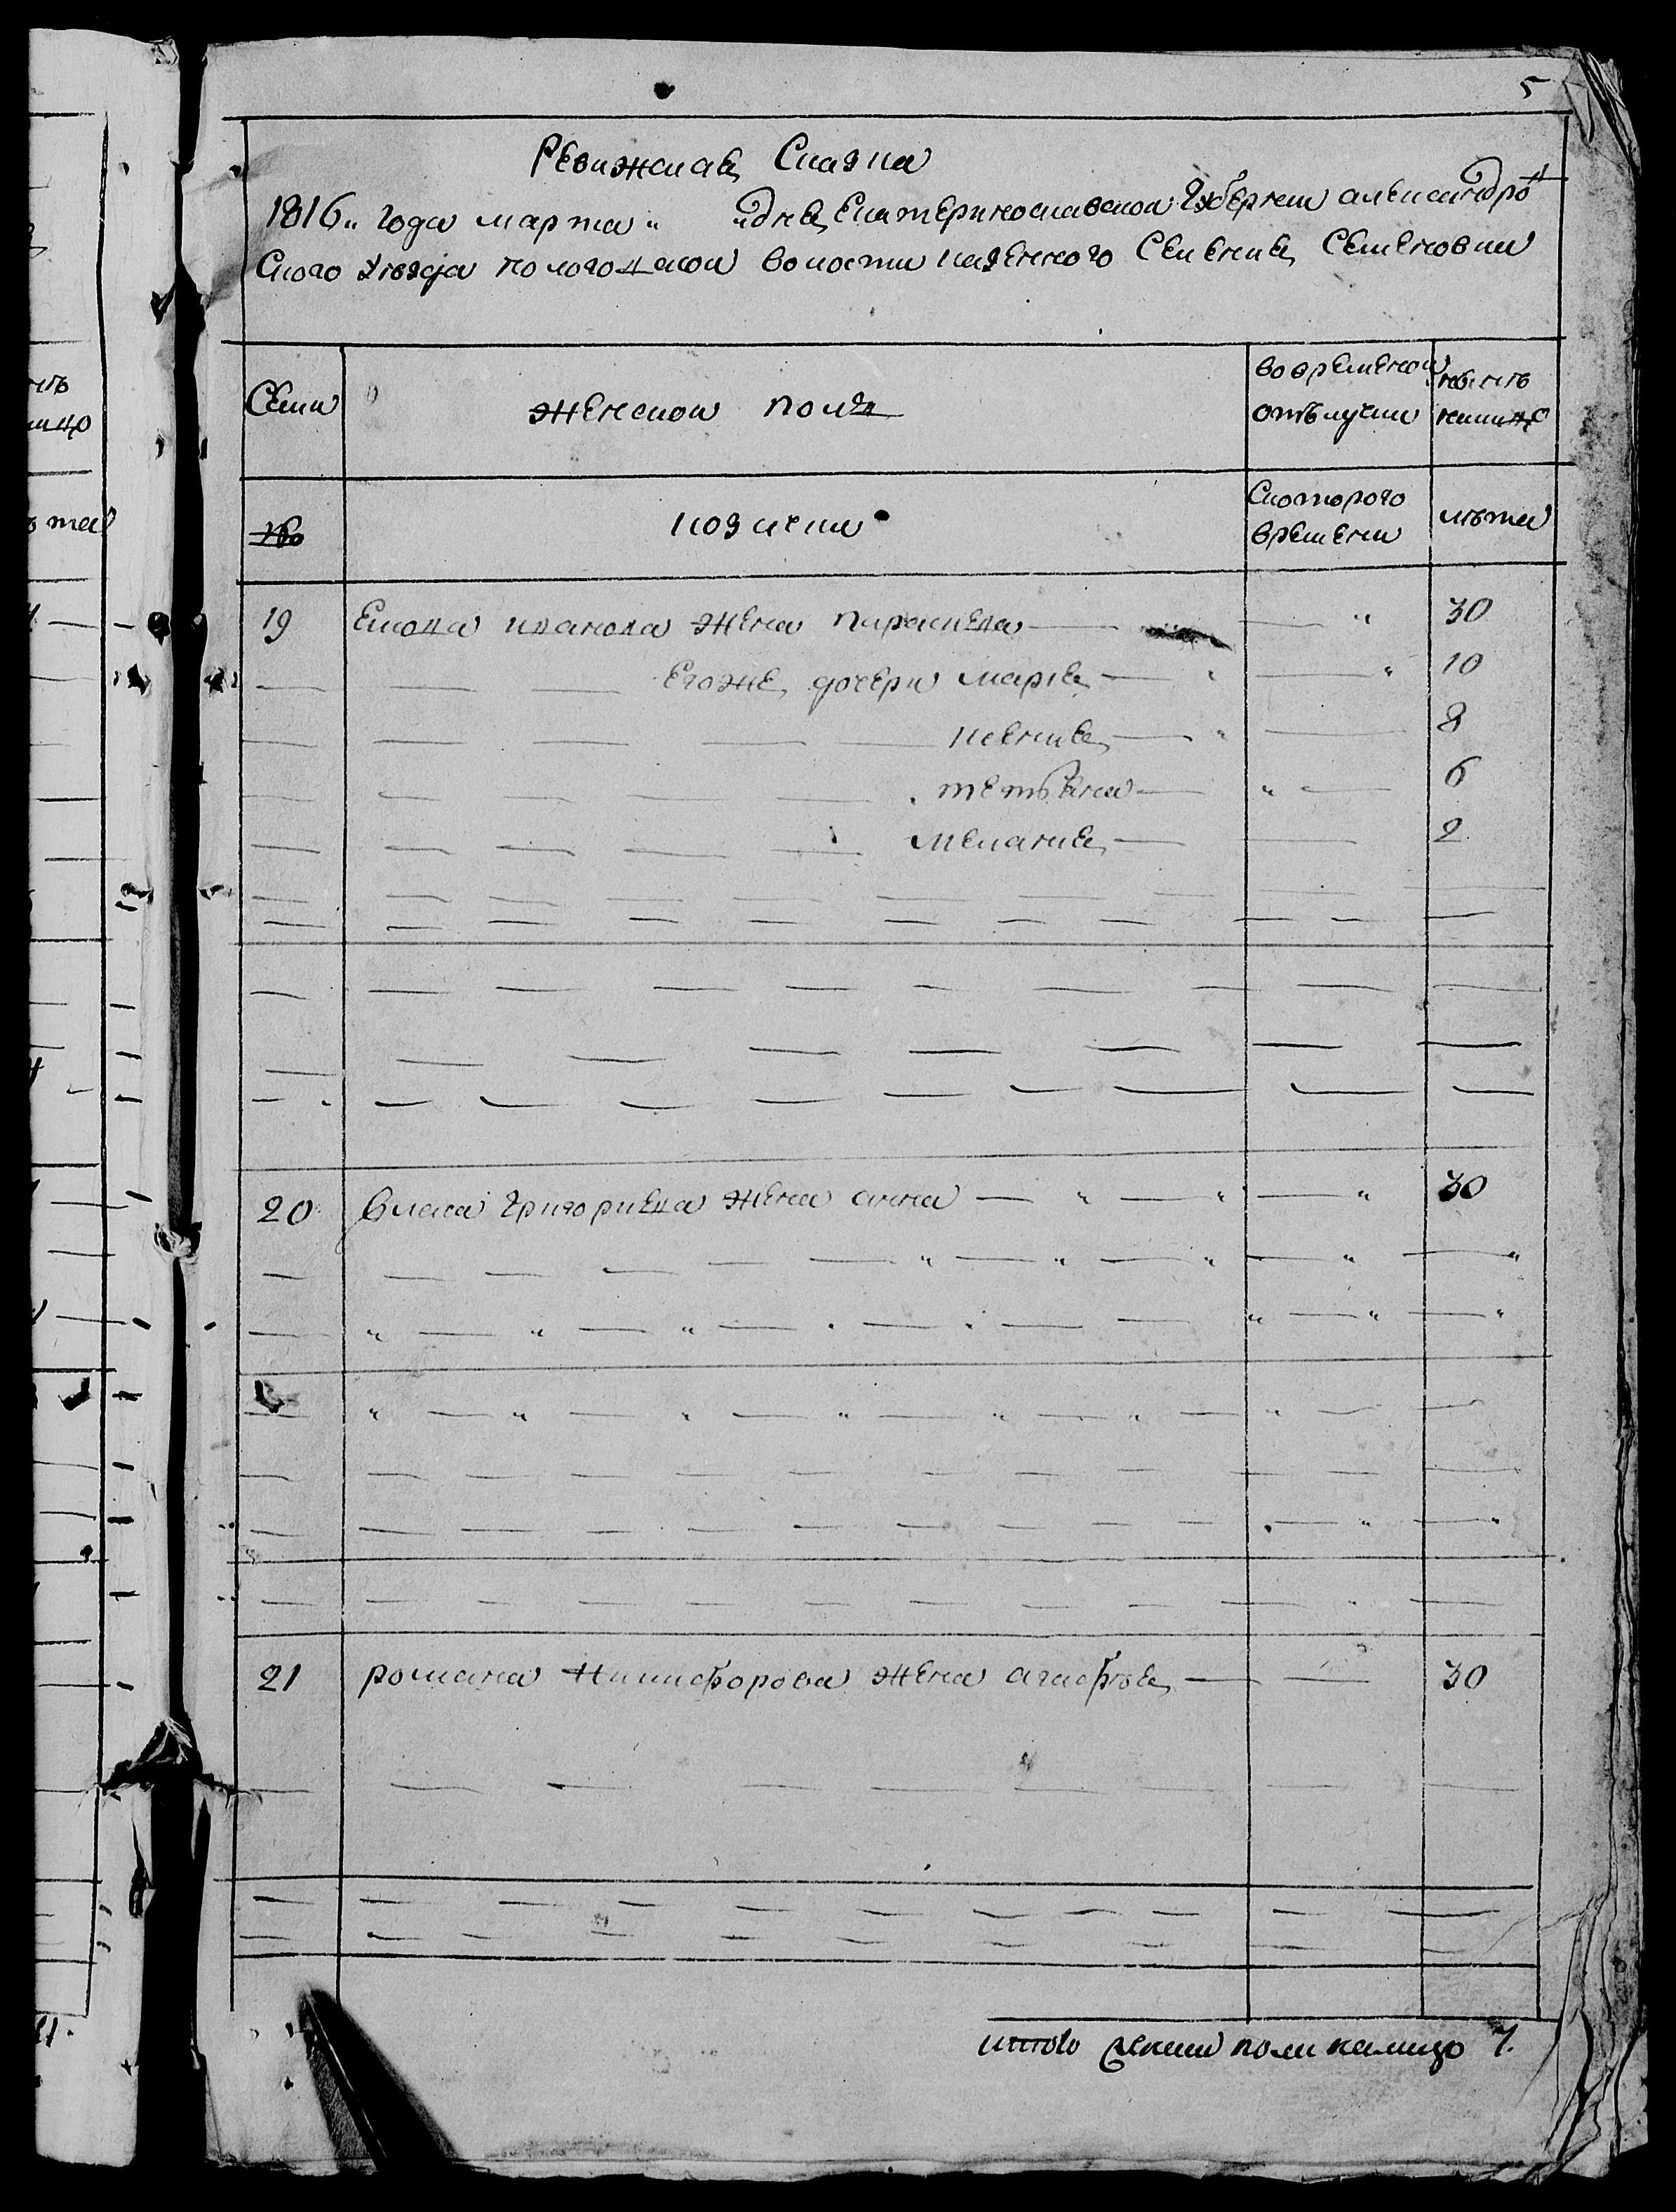 5
Ревижская Сказка
1816„ года марта „ „дня Екатеринославской Губернии александро
ского уезда пологовской волости казенного Селения Семеновки
Семи
женской полъ
во временной отълучки
ныне налицо
№
крозичии
Скоторого времени
лѣта
19 Емова иванова жена параскева — — „ 30
— — — Егоже дочери Мария — „ — „ 10
— — — — — — „ — 8
— — — — — тетьяна — „ — 6
— — — — — Мелания — — 2
20 Власа Григориева жена анна — „ — „ — „ 30
21 романа Никифорова жена агафія — — 30
итого женска пола налицо 7.